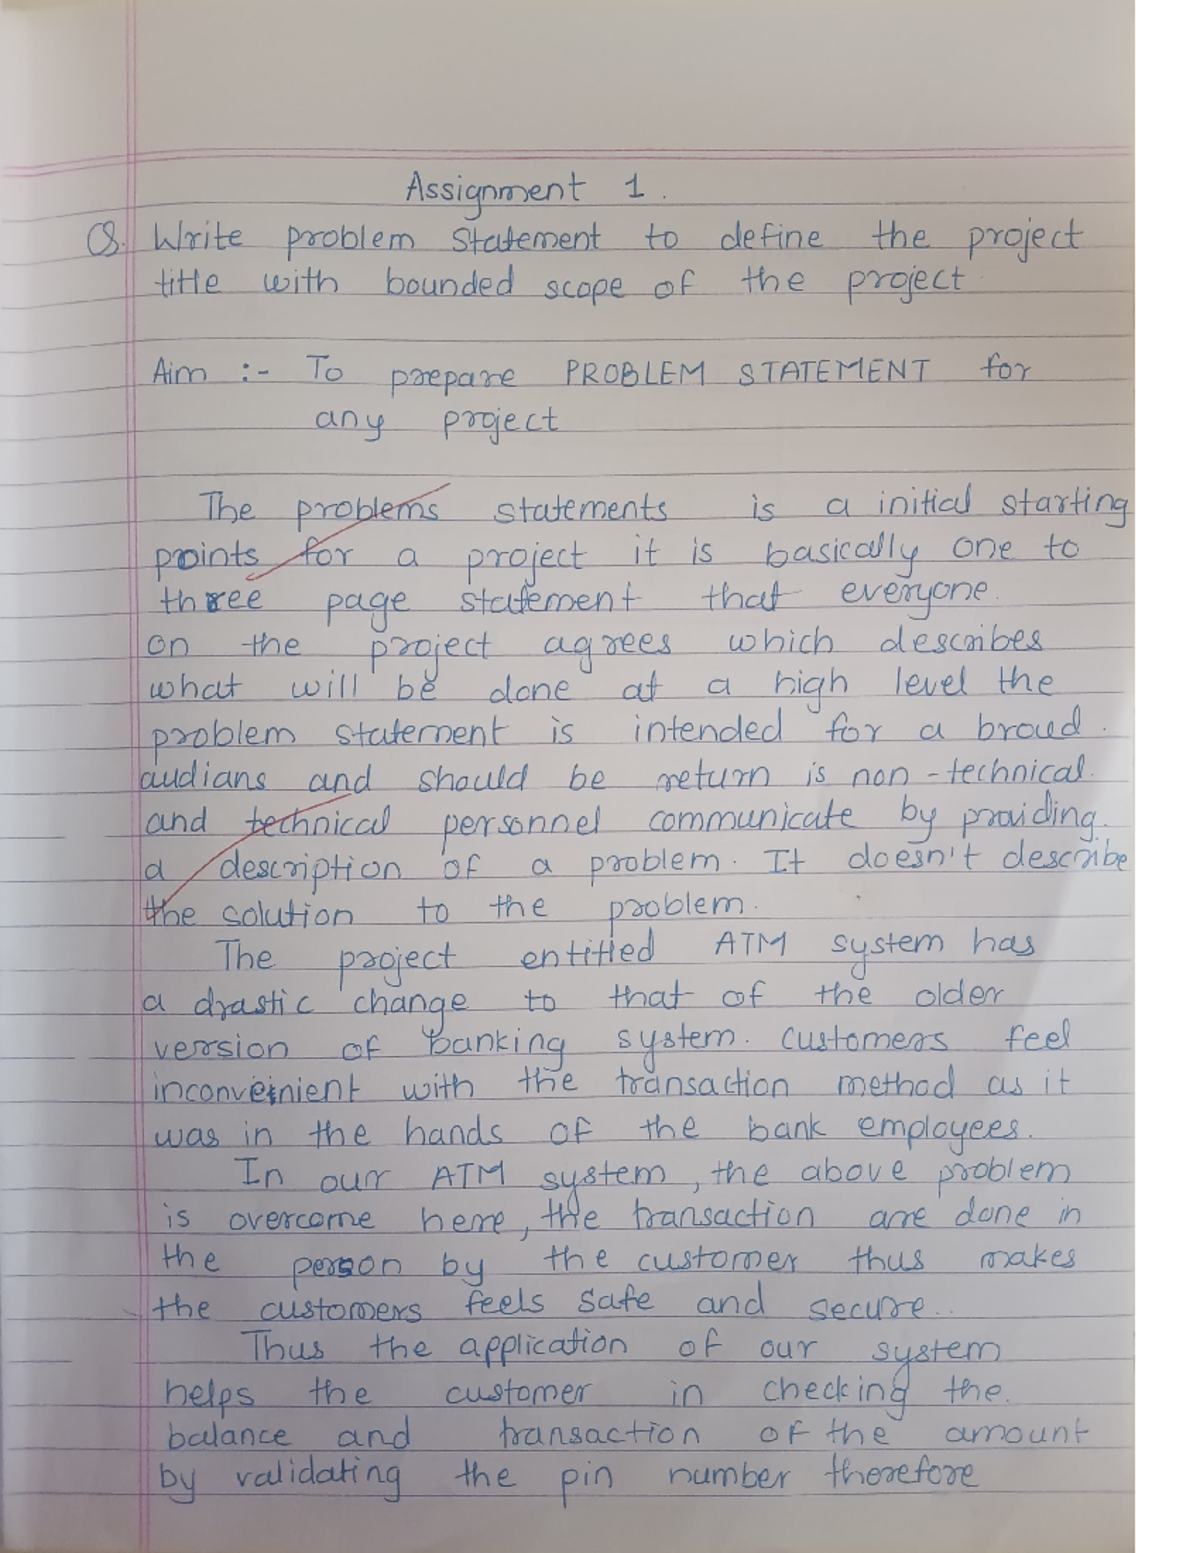 Assignment 1.
Q. Write problem statement to define the project
title with bounded scope of the project
Aim :- To prepare PROBLEM STATEMENT for
any project
The problems statements is a initial starting
points for a project it is basically one to
three page statement that everyone.
on the project agrees which describes
what will be done at a high level the
problem statement is intended for a broad.
audians and should be return is non-technical.
and technical personnel communicate by proiding.
a description of a problem. It doesn't describe
the solution to the problem.
The project entitled ATM system has
a drastic change to that of the older
version of banking system. customers feel
inconveinient with the transaction method as it
was in the hands of the bank employees.
In our ATM system, the above problem
is overcome here, the transaction are done in
the person by the customer thus makes
the customers feels safe and secure..
Thus the application of our system
helps the customer in checking the.
balance and transaction of the amount
by validating the pin number therefore